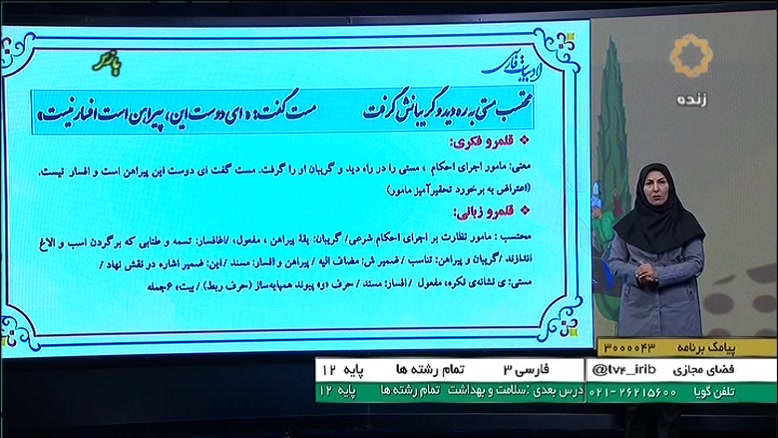 بازنشر
ادبیات فارسی
محتسب مستی به ره دید و گریبانش گرفت مست گفت: «ای دوست این، پیراهن است افسار نیست»
قلمرو فکری:
معنی: مامور اجرای احکام ، مستی را در راه دید و گریبان او را گرفت. مست گفت ای دوست این پیراهن است و افسار نیست.
(اعتراض به برخورد تحقیرآمیز مامور)
قلمرو زبانی:
محتسب : مامور نظارت بر اجرای احکام شرعی/ گریبان: یقۀ پیراهن ، مفعول، /افسار: تسمه و طنابی که برگردن اسب و الاغ
اندازند /گریبان و پیراهن: تناسب / ضمیر ش: مضاف الیه / پیراهن و افسار: مسند / این: ضمیر اشاره در نقش نهاد /
مستی: ی نشانه‌ی نکره، مفعول / افسار: مسند / حرف «و» پیوند همپایه‌ساز (حرف ربط) / بیت: ۶جمله
زنده
پیامک برنامه ۳۰۰۰۰۴۳
فضای مجازی @tv۴_irib فارسی ۳ تمام رشته ها پایه ۱۲
تلفن گویا ۰۲۱-۲۶۲۱۵۶۰۰ درس بعدی :سلامت و بهداشت تمام رشته ها پایه ۱۲